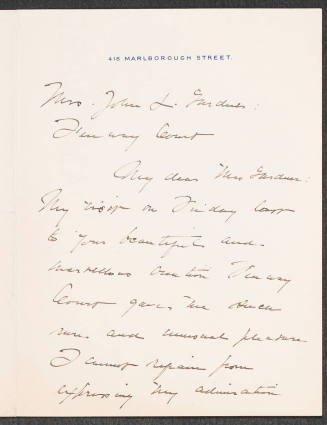 418 MARLBOROUGH STREET.
Mrs. John L. Gardner:
Fenway Court
My dear Mrs Gardner:
My visit on Friday last
to your beautiful and
marvellous creation Fenway
Court gave me such
rare and unusual pleasure
I cannot refrain from
expressing my admiration